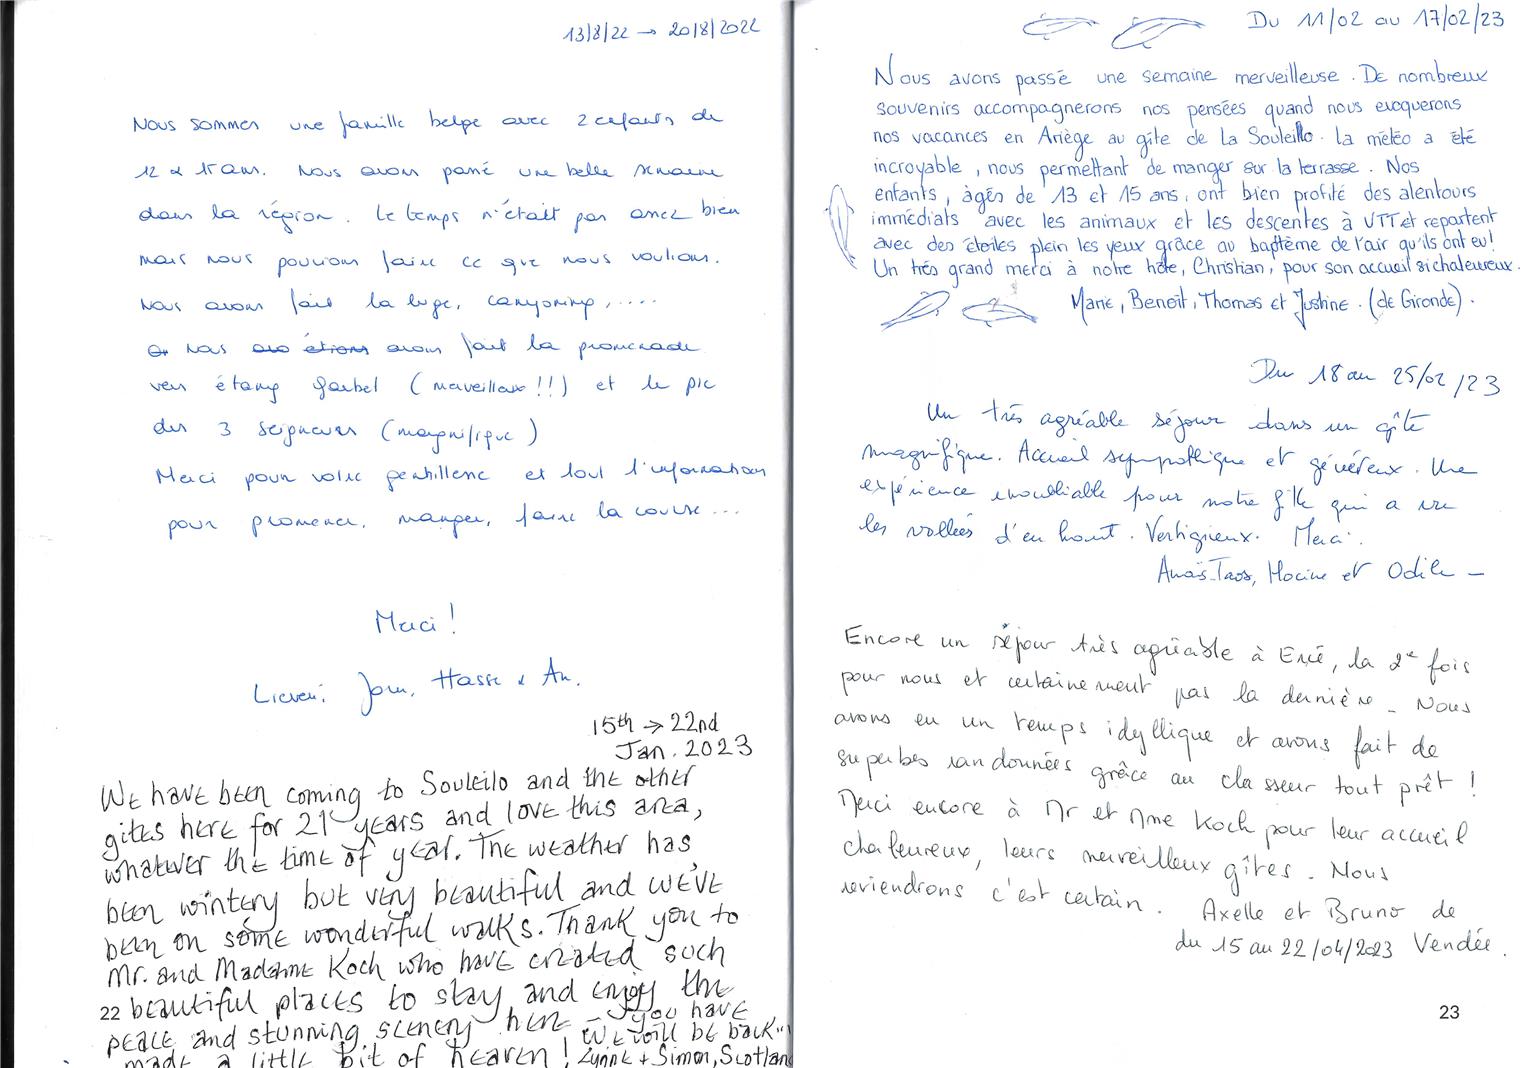 13/8/22 → 20/8/2022
Nous sommes une famille belge avec 2 enfants de
12 & 15 ans. Nous avons passé une belle semaine
dans la région. Le temps n'était pas assez bien
mais nous pouvions faire ce que nous voulions.
Nous avons fait la luge, canyoning, .....
Nous avons fait la promenade
vers étang Garbel (merveilleux !!) et le pic
des 3 seigneurs (magnifique)
Merci pour votre gentillesse et tout l'information
pour promener, manger, faire la course ...
Merci !
Lieven, Jorn, Hasse & An.
15th → 22nd
Jan. 2023
We have been coming to Souleilo and the other
gites here for 21 years and love this area,
whatever the time of year. The weather has
been wintery but very beautiful and we've
been on some wonderful walks. Thank you to
Mr. and Madame Koch who have created such
beautiful places to stay and enjoy the
peace and stunning scenery here - you have
made a little bit of heaven !
We will be back"
Lynne + Simon, Scotland
22
Du 11/02 au 17/02/23
Nous avons passé une semaine merveilleuse. De nombreux
souvenirs accompagnerons nos pensées quand nous evoquerons
nos vacances en Ariège au gîte de La Souleillo. la météo a été
incroyable, nous permettant de manger sur la terrasse. Nos
enfants, âgés de 13 et 15 ans, ont bien profité des alentours
immédiats avec les animaux et les descentes à VTT et repartent
avec des étoiles plein les yeux grâce au baptème de l'air qu'ils ont eu!
Un très grand merci à notre hôte, Christian, pour son accueil si chaleureux.
Marie, Benoît, Thomas et Justine. (de Gironde).
Du 18 au 25/02/23
Un très agréable séjour dans un gîte
magnifique. Accueil sympathique et généreux. Une
expérience inoubliable pour notre fille qui a vu
les vallées d'en haut. Vertigineux. Merci.
Anaïs-Taos, Hocine et Odile -
Encore un séjour très agréable à Ercé, la 2e fois
pour nous et certainement pas la dernière - Nous
avons eu un temps idyllique et avons fait de
superbes randonnées grâce au classeur tout prêt !
Merci encore à Mr et Mme Koch pour leur accueil
chaleureux, leurs merveilleux gîtes. Nous
reviendrons c'est certain. Axelle et Bruno de
du 15 au 22/04/2023 Vendée.
23